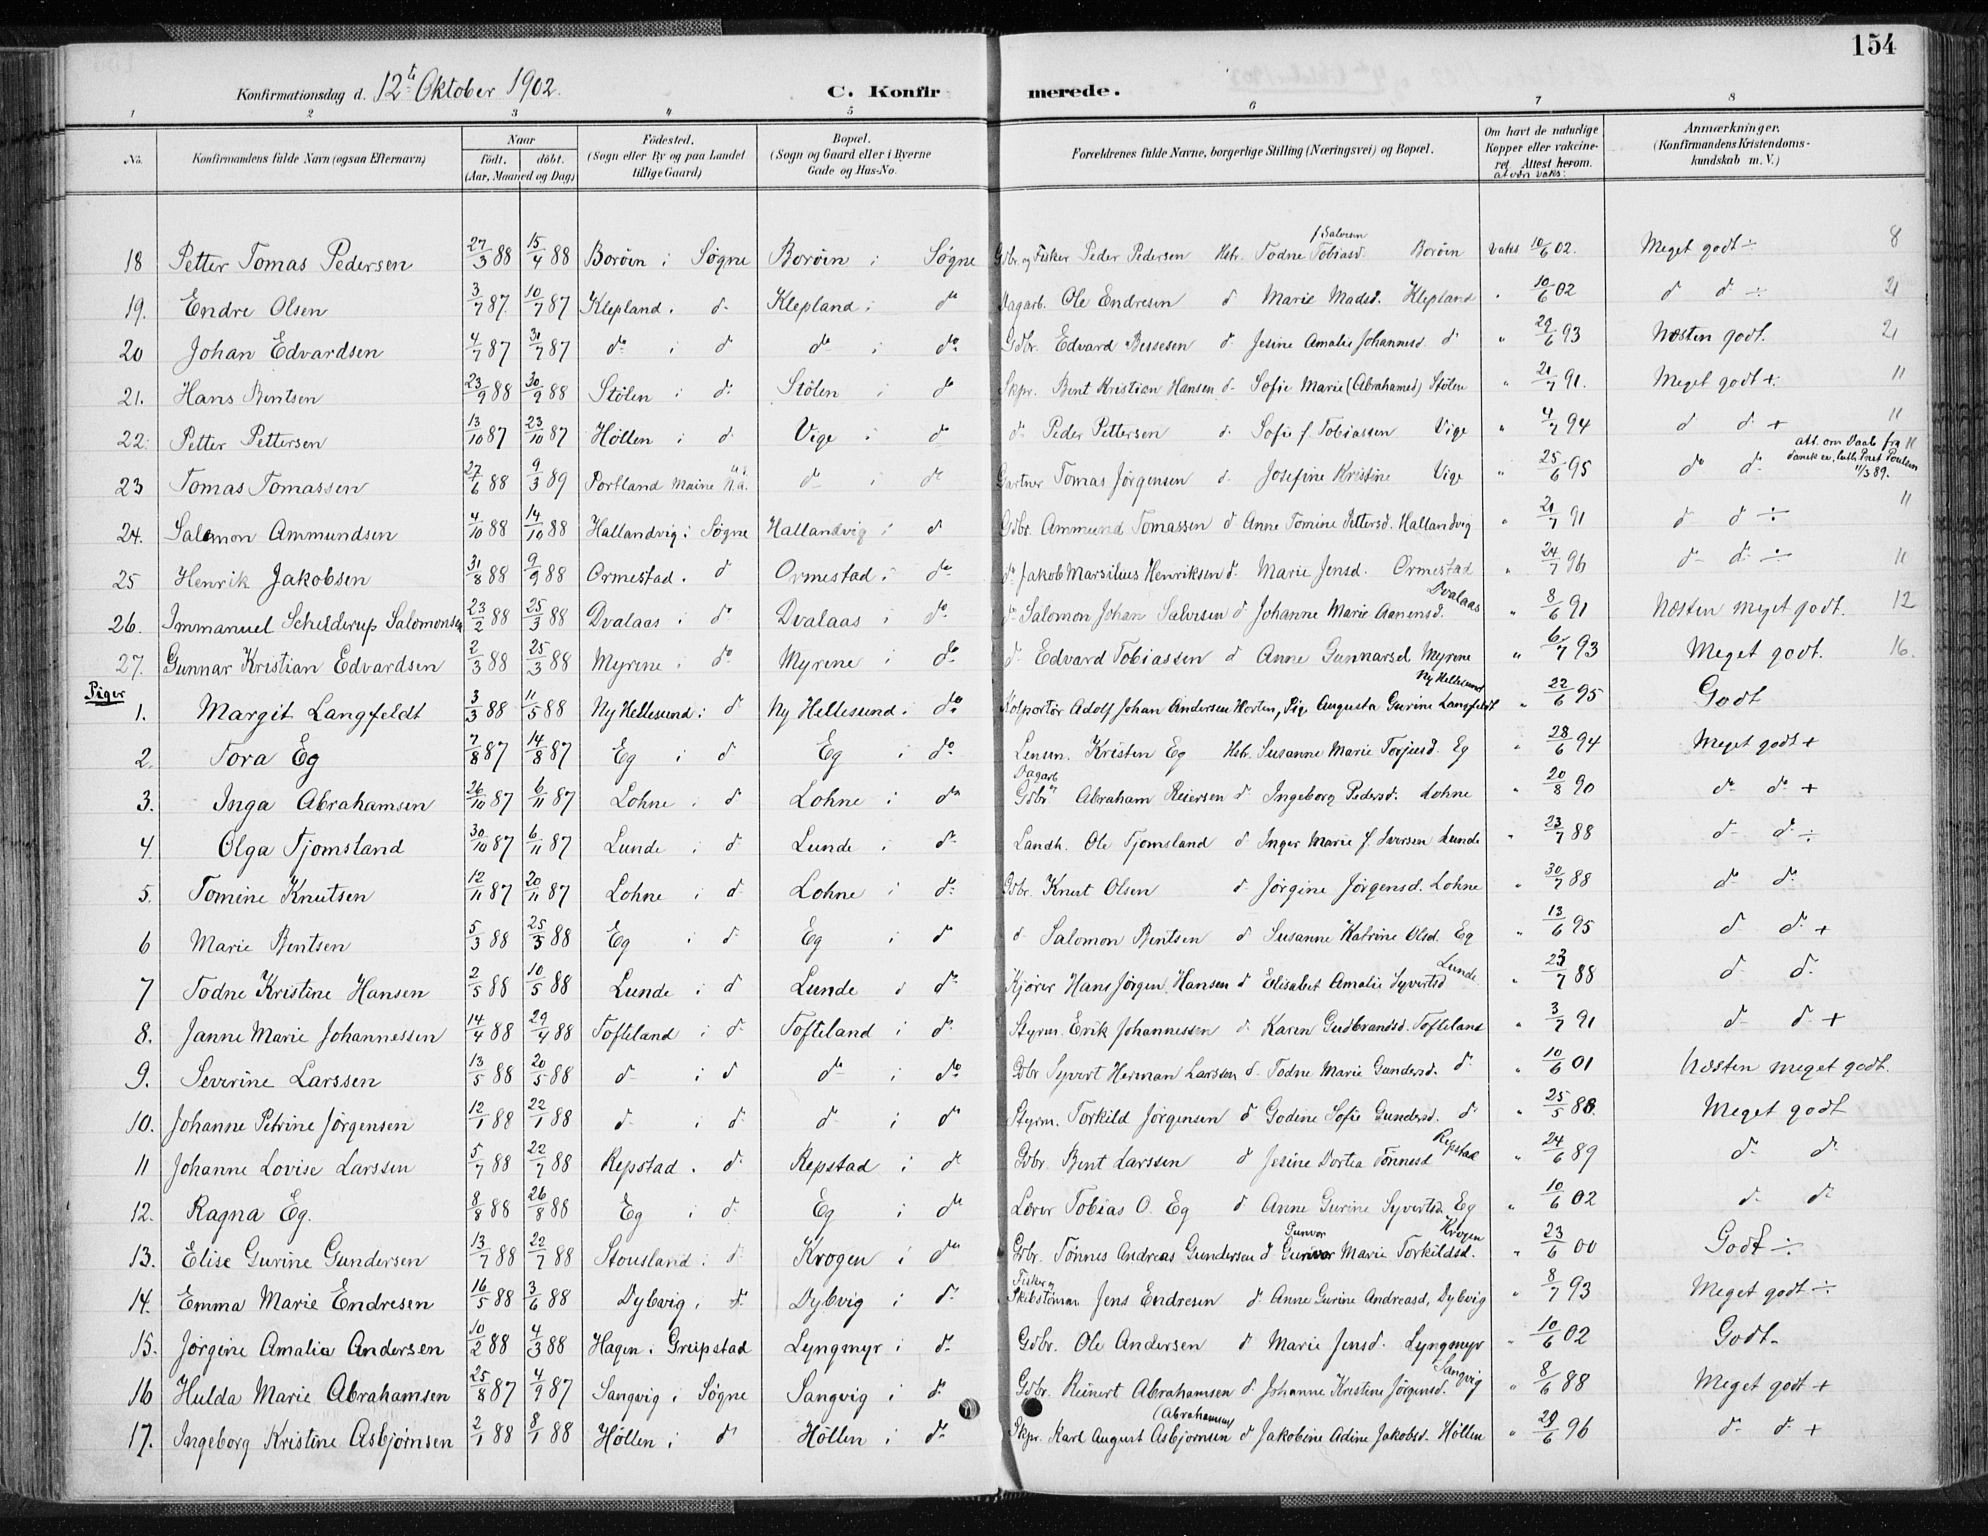 154
Konfirmationsdag d. 12te Oktober 1902. C. Konfirmerede.
1 2 3 4 5 6 7 8
No. Konfirmandens fulde Navn (ogsaa Efternavn) Naar født. døbt. (Aar, Maaned og Dag) Fødested. (Sogn eller By og paa Landet tillige Gaard) Bopæl. (Sogn og Gaard eller i Byerne Gade og Hus-No. Forældrenes fulde Navne, borgerlige Stilling (Næringsvei) og Bopæl. Om havt de naturlige Kopper eller vaccineret. Attest herom. Anmærkninger. (Konfirmandens Kristendomskundskab m. V.)
18 Petter Tomas Pedersen 27/3 88 15/4 88 Borøen i Søgne Borøen i Søgne Gdbr. og Fisker Peder Pedersen Hstr. Todne Tobiasd. f. Salvesen Borøen vaks 10/6 02. Meget godt ÷ 8
19. Endre Olsen 3/7 87. 10/7 87 Klepland i do Klepland i do Dagarb. Ole Endresen d Marie Madsd. Klepland " 10/6 02 d d ÷ 21
20 Johan Edvardsen 4/7 87 31/7 87 do i d do i do Gdbr. Edvard Bessesen d Jesine Amalie Johannesd. d " 29/6 93 Næsten godt. 21
21. Hans Bentsen 23/9 88 30/9 88 Stølen i do Stølen i do Skpr. Bent Kristian Hansen d Sofie Marie (Abrahamsd) Stølen " 21/7 91. Meget godt + 11
22. Petter Pettersen 13/10 87 23/10 87 Høllen i d Vige i do d Peder Pettersen d. Sofie f. Tobiassen Vige " 4/7 94 d d + 11
23 Tomas Tomassen 27/6 88 9/3 89 Portland Maine N.A. do i do Gartner Tomas Jørgensen d. Josefine Kristine Vige " 25/6 95 do d att. om Daab fra dansk ev. luth. Prest Poulsen 11/3 89. 11
24. Salomon Ammundsen 4/10 88 14/10 88 Hallandvig i Søgne Hallandvig i d Gdbr. Ammund Tomassen d Anne Tomine Pettersd. Hallandvig " 21/7 91 d d ÷ 11
25 Henrik Jakobsen 31/8 88 9/9 88 Ormestad i d Ormestad i do d Jakob Marsilius Henriksen d. Marie Jensd. Ormestad " 24/7 96 d d ÷ 11
26. Immanuel Schelderup Salomonsen 23/2 88 25/3 88 Dvalaas i do Dvalaas i do d Salomon Johan Salvesen d Johanne Marie Aanensd. Dvalaas " 8/6 91 Næsten meget godt. 12
27. Gunnar Kristian Edvardsen 2/3 88 25/3 88 Myrene i do Myrene i do d Edvard Tobiassen d Anne Gunnarsd. Myrene " 6/7 93 Meget godt. 16.
Piger
1. Margit Langfeldt 3/3 88 11/5 88 Ny Hellesund i d Ny Hellesund i do Kolportør Adolf Johan Andersen Horten, Pig. Augusta Gurine Langfeldt Ny Hellesund " 22/6 95 Godt
2. Tora Eg 7/8 87 14/8 87 Eg i d Eg i do Lensm. Kristen Eg Hstr. Susanne Marie Torjusd. Eg " 28/6 94 Meget godt +
3. Inga Abrahamsen 26/10 87 6/11 87 Lohne i d Lohne i do Dagarb. Gdbr. Abraham Reiersen d Ingeborg Pedersd. Lohne " 20/8 90 do do +
4. Olga Tjomsland 30/10 87 6/11 87 Lunde i d Lunde i do Landh. Ole Tjomsland d Inger Marie f. Iversen Lunde " 23/7 88 d d ÷
5. Tomine Knutsen 12/11 87 20/11 87 Lohne i d Lohne i do Gdbr. Knut Olsen d. Jørgine Jørgensd. Lohne " 30/7 88 do do
6 Marie Bentsen 5/3 88 25/3 88 Eg i d Eg i d d Salomon Bentsen d Susanne Katrine Olsd. Eg " 13/6 95 d d +
7 Todne Kristine Hansen 2/5 88 10/5 88 Lunde i d Lunde i do Kjører Hans Jørgen Hansen d Elisabet Amalie Syvertsd Lunde " 23/7 88 d d
8. Janne Marie Johannessen 14/4 88 29/4 88 Tofteland i d Tofteland i do Styrm. Erik Johannessen d. Karen Gudbrandsd. Tofteland " 3/7 91 d d +
9. Severine Larssen 13/5 88 20/5 88 d i d do i do Gdbr Syvert Herman Larssen d. Todne Marie Gundersd. d " 10/6 01 Næsten meget godt.
10. Johanne Petrine Jørgensen 12/1 88 22/1 88 d i d d i do Styrm. Torkild Jørgensen d Godine Sofie Gundersd. d " 25/5 88. Meget godt
11 Johanne Lovise Larssen 5/7 88 22/7 88 Repstad i d Repstad i d Gdbr. Bent Larssen d Jesine Dortea Tønnesd Repstad " 24/6 89 d d
12. Ragna Eg. 8/8 88 26/8 88 Eg i d. Eg i do Lærer Tobias O. Eg d Anne Gurine Syvertsd. Eg " 10/6 02 d d
13. Elise Gurine Gundersen 13/7 88 22/7 88 Stousland i d Krogen i do Gdbr. Tønnes Andreas Gundersen d Gunvor Gunvor Marie Torkildsd. Krogen " 23/6 00 Godt ÷
14. Emma Marie Endresen 16/5 88 3/6 88 Dybvig i d. Dybvig i do Fisker og Skibstømm Jens Endresen d. Anne Gurine Andreasd, Dybvig " 8/7 93 Meget godt ÷
15. Jørgine Amalia Andersen 10/2 88 4/3 88 Hagen i Greipstad Lyngmyr i do Gdbr. Ole Andersen d Marie Jensd. Lyngmyr " 10/6 02 Godt
16 Hulda Marie Abrahamsen 25/8 87 4/9 87 Sangvig i Søgne Sangvig i do Gdbr. Reinert Abrahamsen d. Johanne Kristine Jørgensd. Sangvig " 8/6 88 Meget godt +
17. Ingeborg Kristine Asbjørnsen 2/1 88 8/1 88 Høllen i d Høllen i do Skpr. Karl August Asbjørnsen (Abrahamsen) d Jakobine Adine Jakobsd. Høllen " 29/6 96 d d +